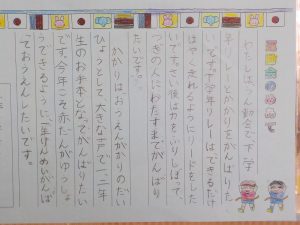 わたしは、うん動会で、下学
年リレーとかかりをがんばりた
いです。下学年リレーはできるだけ
はやく走れるようにリードをした
いです。さい後は力をいりしぼって、
つぎの人にわたすまでがんばり
たいです。
かかりはおうえんがかりのだい
ひょうとして大きな声で一、二年
生のお手本となってがんばりたい
です。今年こそ赤だんがゆうしょ
うできるように一生けんめいがんば
っておうえんしたいです。